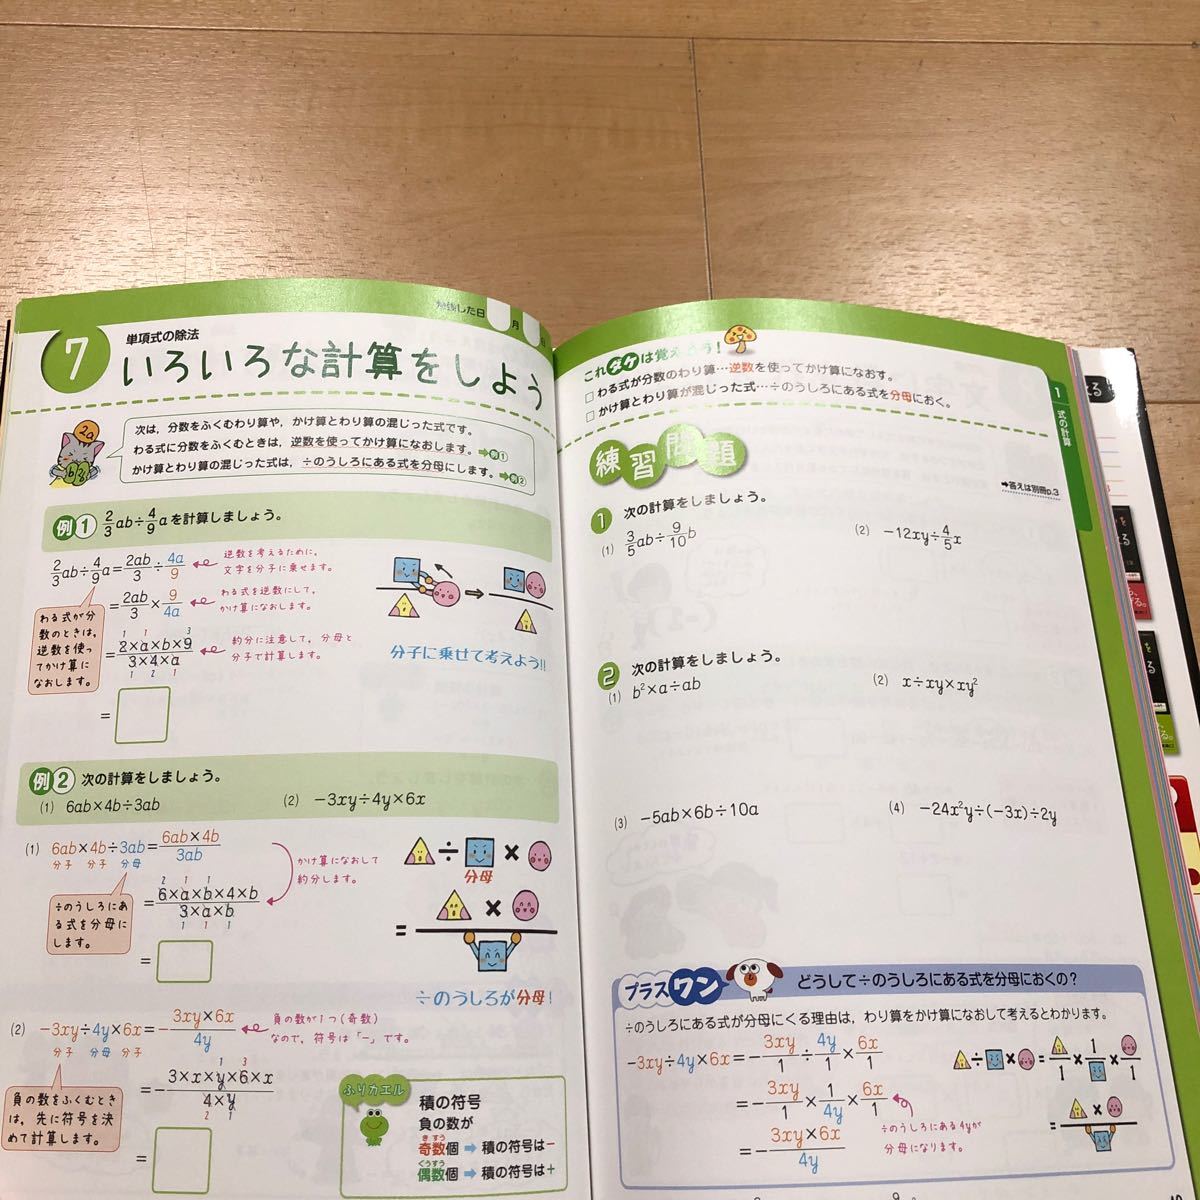 勉強した日 月 日
7
単項式の除法
いろいろな計算をしよう
2a
次は，分数をふくむわり算や，かけ算とわり算の混じった式です。
わる式に分数をふくむときは，逆数を使ってかけ算になおします。➡例1
かけ算とわり算の混じった式は，÷のうしろにある式を分母にします。➡例2
例1 2/3ab÷4/9aを計算しましょう。
2/3ab÷4/9a=2ab/3÷4a/9
逆数を考えるために，
文字を分子に乗せます。
=2ab/3×9/4a
わる式を逆数にして，
かけ算になおします。
わる式が分
数のときは，
逆数を使っ
てかけ算に
なおします。
=2×a×b×9/3×4×a
1 1 3
1 2 1
約分に注意して，分母と
分子で計算します。
=
分子に乗せて考えよう!!
例2 次の計算をしましょう。
(1) 6ab×4b÷3ab
(2) −3xy÷4y×6x
(1) 6ab×4b÷3ab=6ab×4b/3ab
分子 分子 分母
かけ算になおして
約分します。
÷のうしろにあ
る式を分母に
します。
=6×a×b×4×b/3×a×b
2 1 1
1 1 1
=
÷ ×
分母
= ×
÷のうしろが分母！
(2) −3xy÷4y×6x=−3xy×6x/4y
分子 分母 分子
負の数が1つ(奇数)
なので，符号は「−」です。
負の数をふくむとき
は，先に符号を決
めて計算します。
=−3×x×y×6×x/4×y
1 3
2 1
=
ふりカエル
積の符号
負の数が
きすう
奇数個 ➡ 積の符号は−
ぐうすう
偶数個 ➡ 積の符号は+
これダケは覚えよう！
□ わる式が分数のわり算…逆数を使ってかけ算になおす。
□ かけ算とわり算が混じった式…÷のうしろにある式を分母におく。
1 式の計算
練習問題
➡答えは別冊p.3
1 次の計算をしましょう。
(1) 3/5ab÷9/10b
(2) −12xy÷4/5x
2 次の計算をしましょう。
(1) b²×a÷ab
(2) x÷xy×xy²
(3) −5ab×6b÷10a
(4) −24x²y÷(−3x)÷2y
プラスワン どうして÷のうしろにある式を分母におくの？
÷のうしろにある式が分母にくる理由は，わり算をかけ算になおして考えるとわかります。
−3xy÷4y×6x=−3xy/1÷4y/1×6x/1
=−3xy/1×1/4y×6x/1
=−3xy×6x/4y
÷のうしろにある4yが
分母になります。
÷ × = /1 × 1/ × /1
= ×